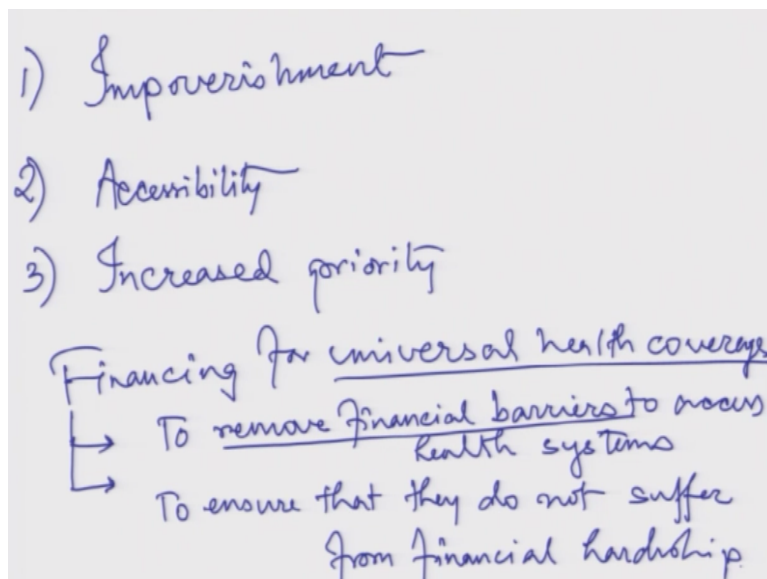 1) Impoverishment
2) Accessibility
3) Increased priority
Financing for universal health coverage
To remove financial barriers to access
health systems
To ensure that they do not suffer
from financial hardship.